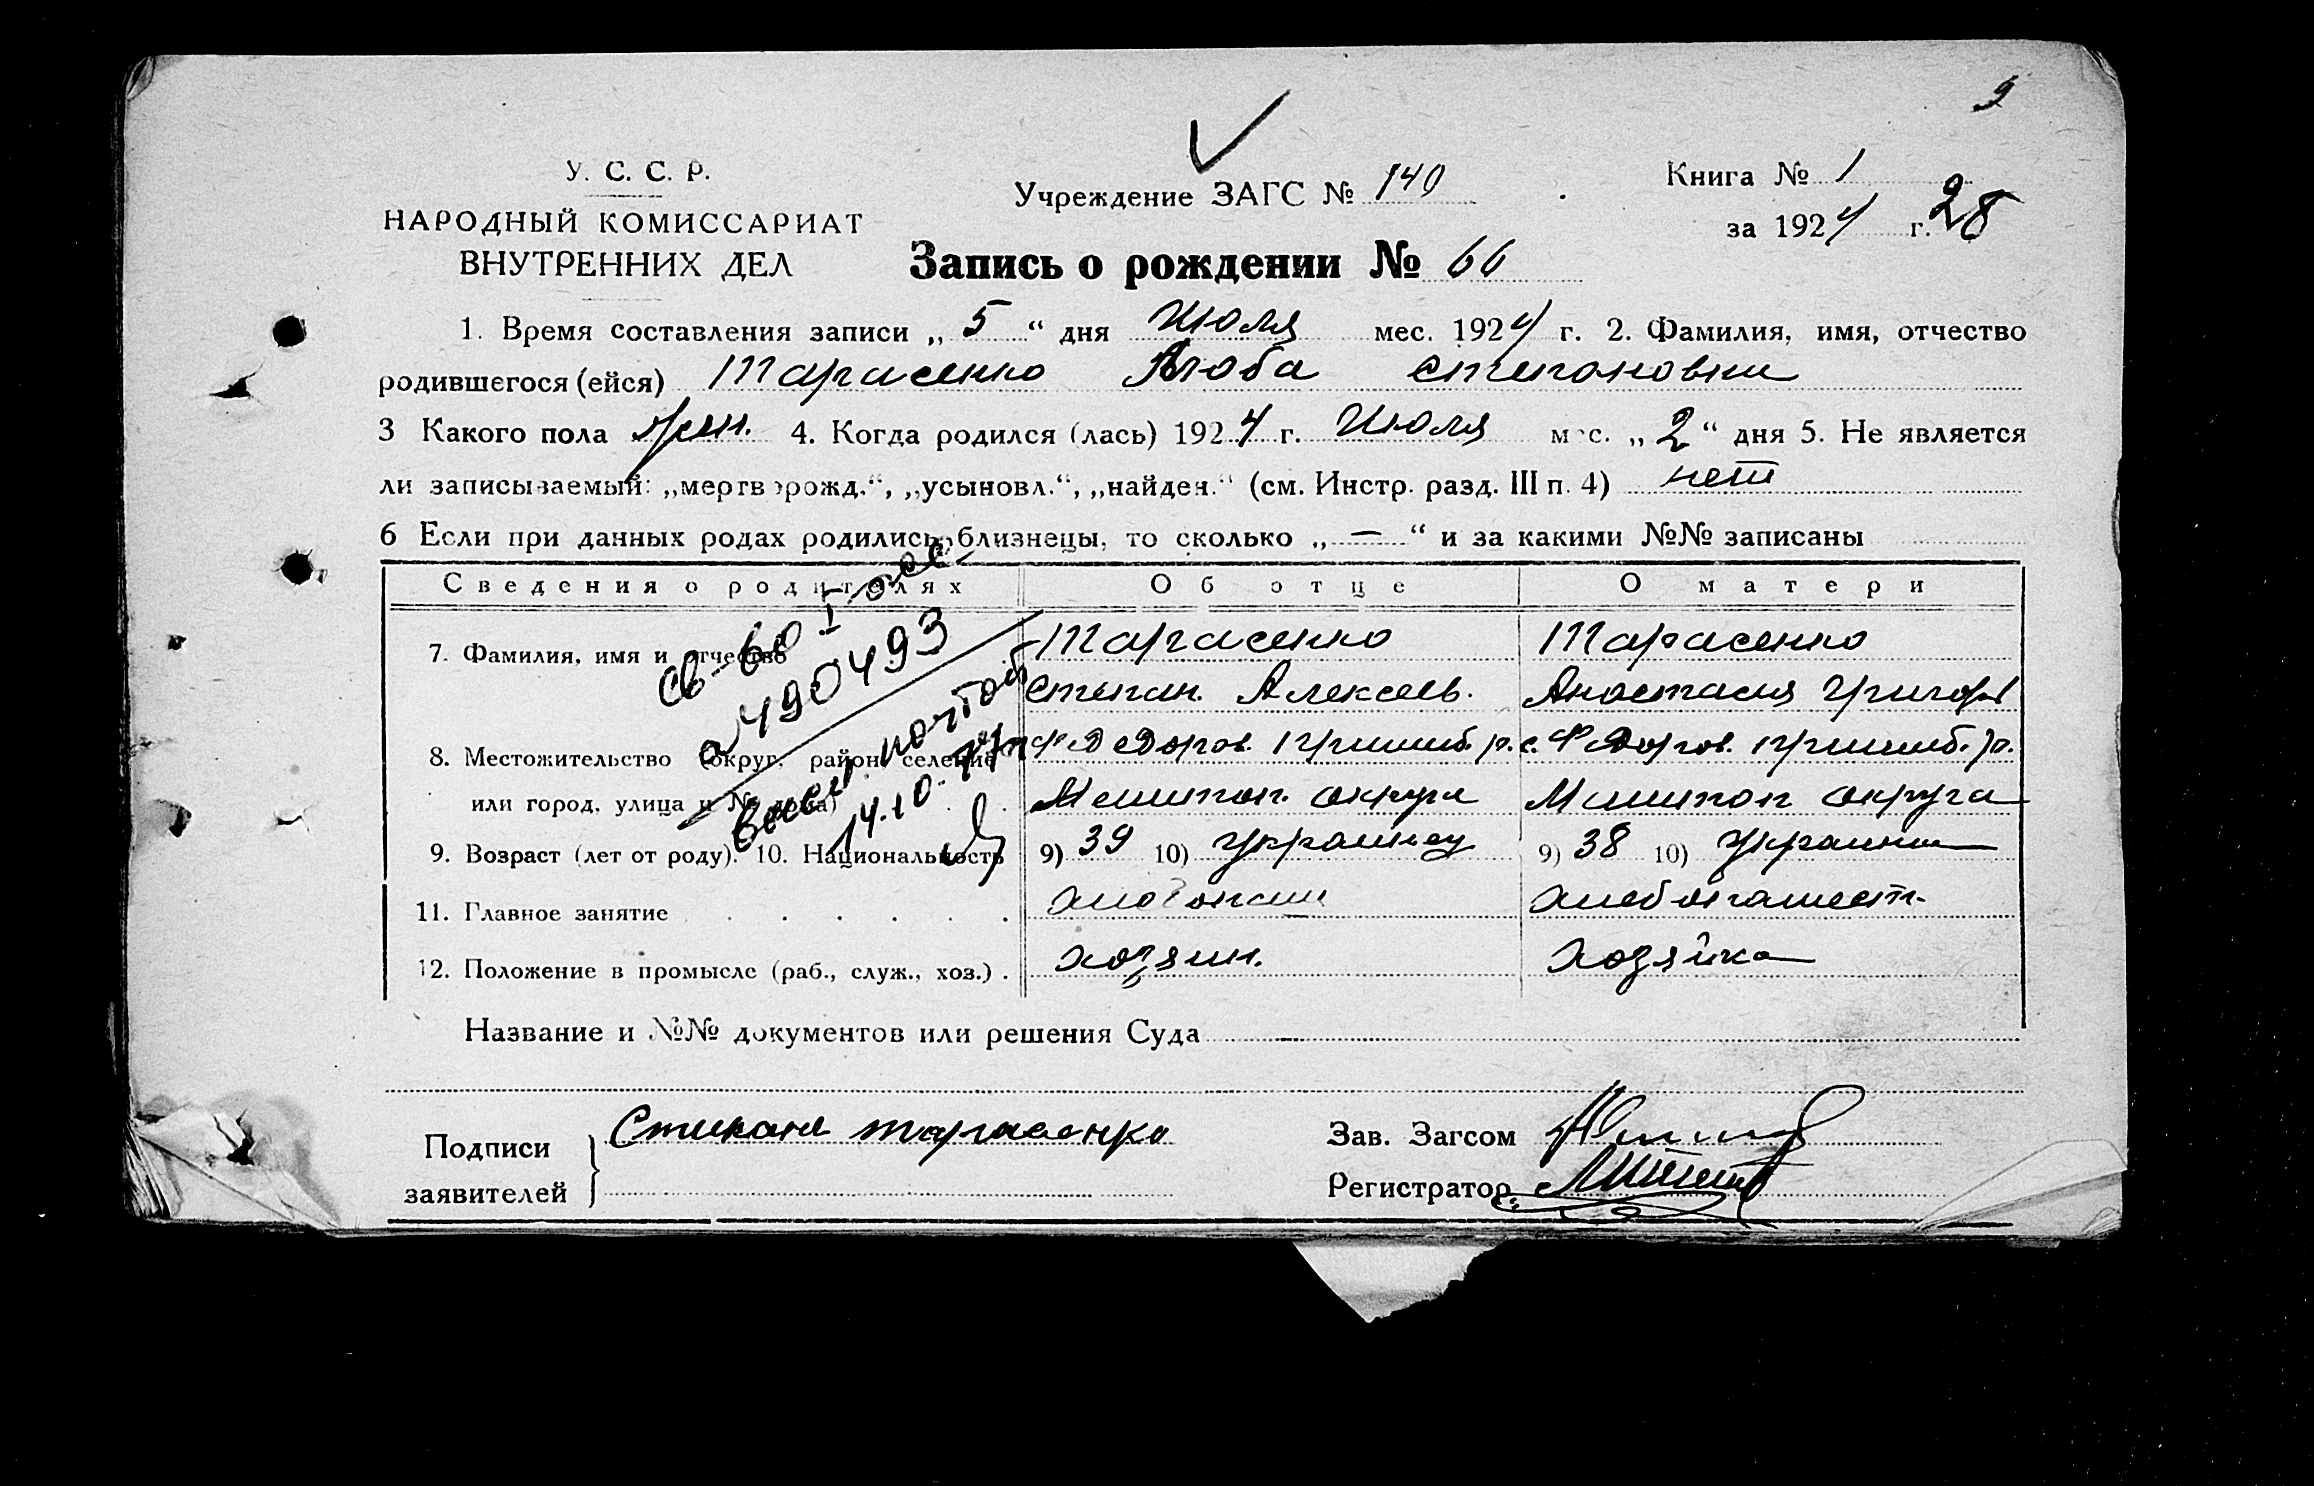 9
У. С. С. Р.
НАРОДНЫЙ КОМИССАРИАТ
ВНУТРЕННИХ ДЕЛ
Учреждение ЗАГС № 140
Книга № 1
за 1924 г. 28
Запись о рождении № 66
1. Время составления записи „ 5 “ дня Июля мес. 1924 г. 2. Фамилия, имя, отчество
родившегося (ейся) Тарасенко Люба Степановни
3 Какого пола жен. 4. Когда родился (лась) 1924 г. Июля мес. „ 2 “ дня 5. Не является
ли записываемый: „мертворожд.“, „усыновл.“, „найден.“ (см. Инстр. разд. III п. 4) нет
6 Если при данных родах родились близнецы, то сколько „ — “ и за какими №№ записаны
Сведения о родителях Об отце О матери
7. Фамилия, имя и отчество Тарасенко Тарасенко
Степан. Алексеев. Анастасия Григорьев
8. Местожительство (округ, район селение Федоров. Пришиб. р. с. Федоров. Пришиб. р.
или город, улица и № дома) Мелитоп. округа Мелитоп округа
9. Возраст (лет от роду). 10. Национальность 9) 39 10) Украинец 9) 38 10) Украинка
11. Главное занятие хлебопаш хлебопашест.
12. Положение в промысле (раб., служ., хоз.) . хозяин. хозяйка
св-во I
490493
высл. почтой
14.10.
Название и №№ документов или решения Суда
Подписи
заявителей
Степан Тарасенко
Зав. Загсом
Регистратор